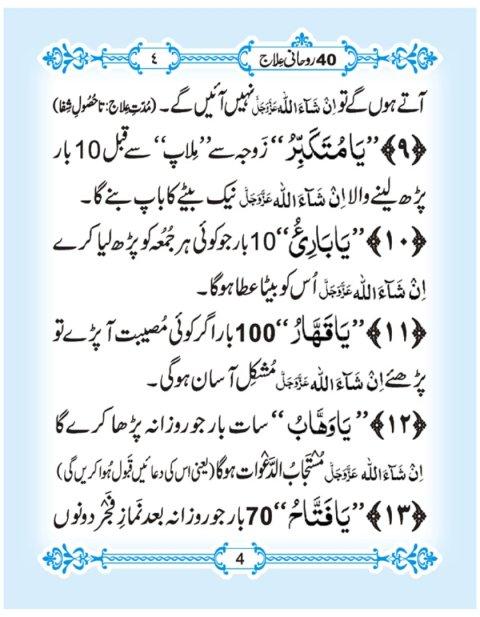 40 روحانی علاج ٤
آتے ہوں گے تو اِنْ شَآءَ اللہ عَزَّوَجَلَّ نہیں آئیں گے۔ (مُدّتِ علاج: تا حُصولِ شِفا)
﴿٩﴾ ”یَا مُتَکَبِّرُ“ زَوجہ سے ”مِلاپ“ سے قبل 10 بار
پڑھ لینے والا اِنْ شَآءَ اللہ عَزَّوَجَلَّ نیک بیٹے کا باپ بنے گا۔
﴿١٠﴾ ”یَا بَارِئُ“ 10 بار جو کوئی ہر جُمُعہ کو پڑھ لیا کرے
اِنْ شَآءَ اللہ عَزَّوَجَلَّ اُس کو بیٹا عطا ہوگا۔
﴿١١﴾ ”یَا قَھَّارُ“ 100 بار اگر کوئی مُصیبت آ پڑے تو
پڑھئے اِنْ شَآءَ اللہ عَزَّوَجَلَّ مُشکِل آسان ہوگی۔
﴿١٢﴾ ”یَا وَھَّابُ“ سات بار جو روزانہ پڑھا کرے گا
اِنْ شَآءَ اللہ عَزَّوَجَلَّ مُسْتَجَابُ الدَّعْوَات ہوگا (یعنی اس کی دعائیں قَبول ہُوا کریں گی)
﴿١٣﴾ ”یَا فَتَّاحُ“ 70 بار جو روزانہ بعد نَمازِ فَجْر دونوں
4